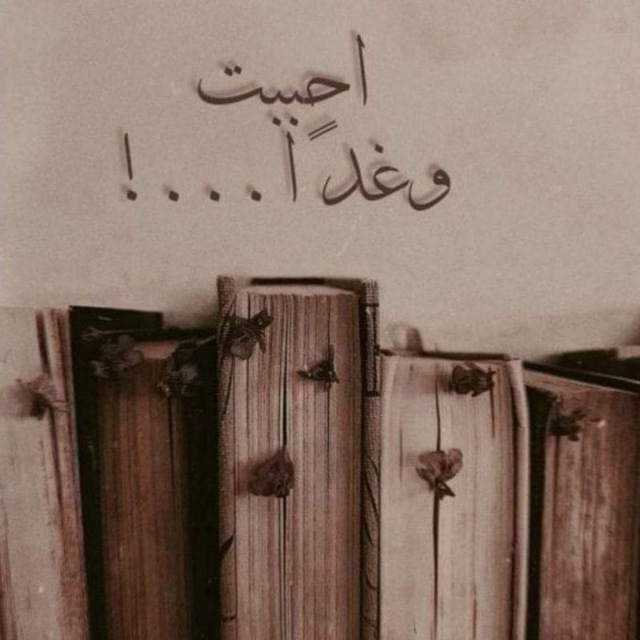 احببت
وغداً...!